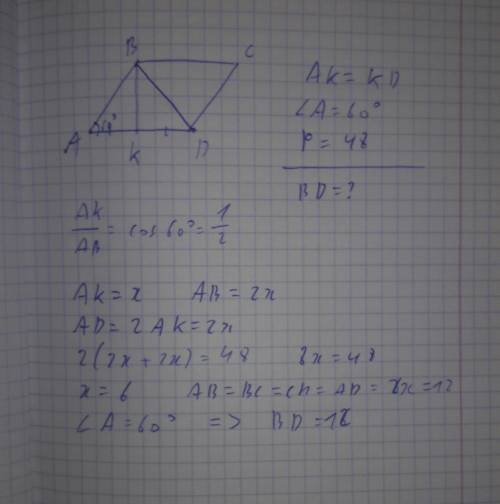 B C
A 60° K D
AK = KD
∠A = 60°
P = 48
BD = ?
AK/AB = cos 60° = 1/2
AK = x AB = 2x
AD = 2 AK = 2x
2(2x + 2x) = 48 8x = 48
x = 6 AB = BC = CD = AD = 2x = 12
∠A = 60° => BD = 12